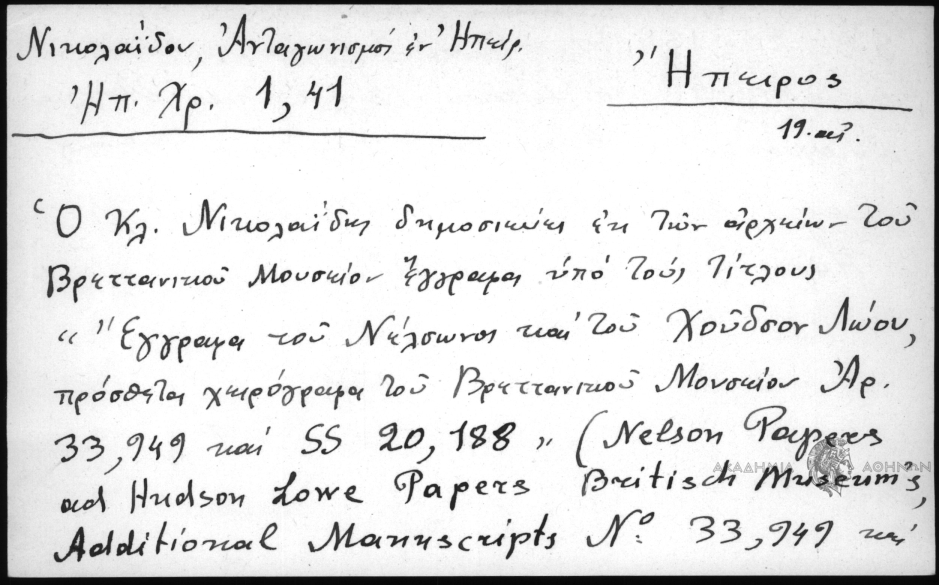 Νικολαΐδου, Ἀνταγωνισμοί ἐν Ἠπείρ.
Ἠπ. Χρ. 1,41
Ἤπειρος
19. αἰ.
Ὁ Κλ. Νικολαΐδης δημοσιεύει ἐκ τῶν ἀρχείων τοῦ
Βρεττανικοῦ Μουσείου ἔγγραφα ὑπό τούς τίτλους
“ Ἔγγραφα τοῦ Νέλσωνος καί τοῦ Χοῦδσον Λώου,
πρόσθετα χειρόγραφα τοῦ Βρεττανικοῦ Μουσείου Ἀρ.
33,949 καί SS 20,188 „ (Nelson Papers
ad Hudson Lowe Papers Britisch Museum's,
Additional Manuscripts Nº 33,949 καί
ΑΚΑΔΗΜΙΑ ΑΘΗΝΩΝ